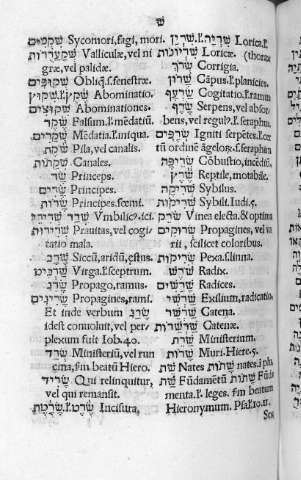 ש
שקמים Sycomori, fagi, mori.
Valliculæ, vel ni
græ, vel palidæ.
שקופים Obliqi. s. fenestræ.
שקוץ Abominatio.
שקוצים Abominationes.
שקר Falsum. l. mēdatiū.
שקרים Mēdatia. l. iniqua.
שקת Pila, vel canalis.
שקתות Canales.
שר Princeps.
שרים Principes.
שרות Principes. fœmi.
Vmbilic9. ici.
שרירות Prauitas, vel cogi
tatio mala.
שרב Siccū, aridū, estus.
שרביט Virga. l. sceptrum.
שריג Propago, ramus.
שריגים Propagines, rami.
Et inde verbum שרג
idest conuoluit, vel per-
plexum fuit Iob. 40.
שרד Ministeriū, vel run
cina, fm beatū Hiero.
שריד Qui relinquitur,
vel qui remansit.
שרט. l. שרטת Incisura,
שריה. l. שרין Lorica. l.
שריונות Loricæ. (thorax
שרוך Corrigia.
שרון Cāpus. l. planicies.
Cogitatio. l. ramus
שרף Serpens, vel absor
bens, vel regul9. l. seraphm
שרפים Igniti serpētes. l. cer
tū ordinē āgeloꝝ. l. seraphim
שריפה Cōbustio, incēdiū.
שרץ Reptile, motabile.
שריקה Sybilus.
שריקות Sybili. Iudi. 5.
שרק Vinea electa. & optima
שרוקים Propagines, vel va
rii, scilicet coloribus.
שריקות Pexa. s. linna.
שרש Radix.
שרשים Radices.
שרשי Exilium, radicatio.
Catena.
שרשרות Catenæ.
שרת Ministerium.
שרות Muri. Hiere. 5.
שת Nates שתות nates. l. phs
שת Fūdamētū שתות Fūda
menta. l. leges. fm beatum
Hieronymum. Psal. 10. 11.